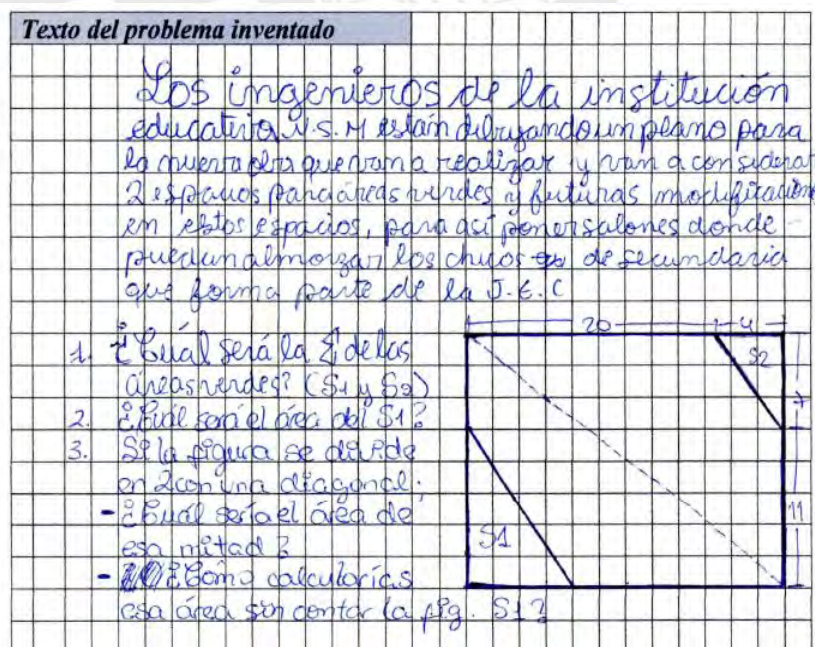 Texto del problema inventado
Los ingenieros de la institución
educativa N.S.M están dibujando un plano para
la nueva obra que van a realizar y van a considerar
2 espacios para áreas verdes y futuras modificaciones
en estos espacios, para así poner salones donde
puedan almorzar los chicos de secundaria
que forma parte de la J.E.C
1. ¿Cuál será la Σ de las
áreas verdes? (S1 y S2)
2. ¿Cuál será el área del S1?
3. Si la figura se divide
en 2 con una diagonal:
- ¿Cuál sería el área de
esa mitad?
- ¿Cómo calcularías
esa área sin contar la fig. S1?
20 4
S2
7
11
S1